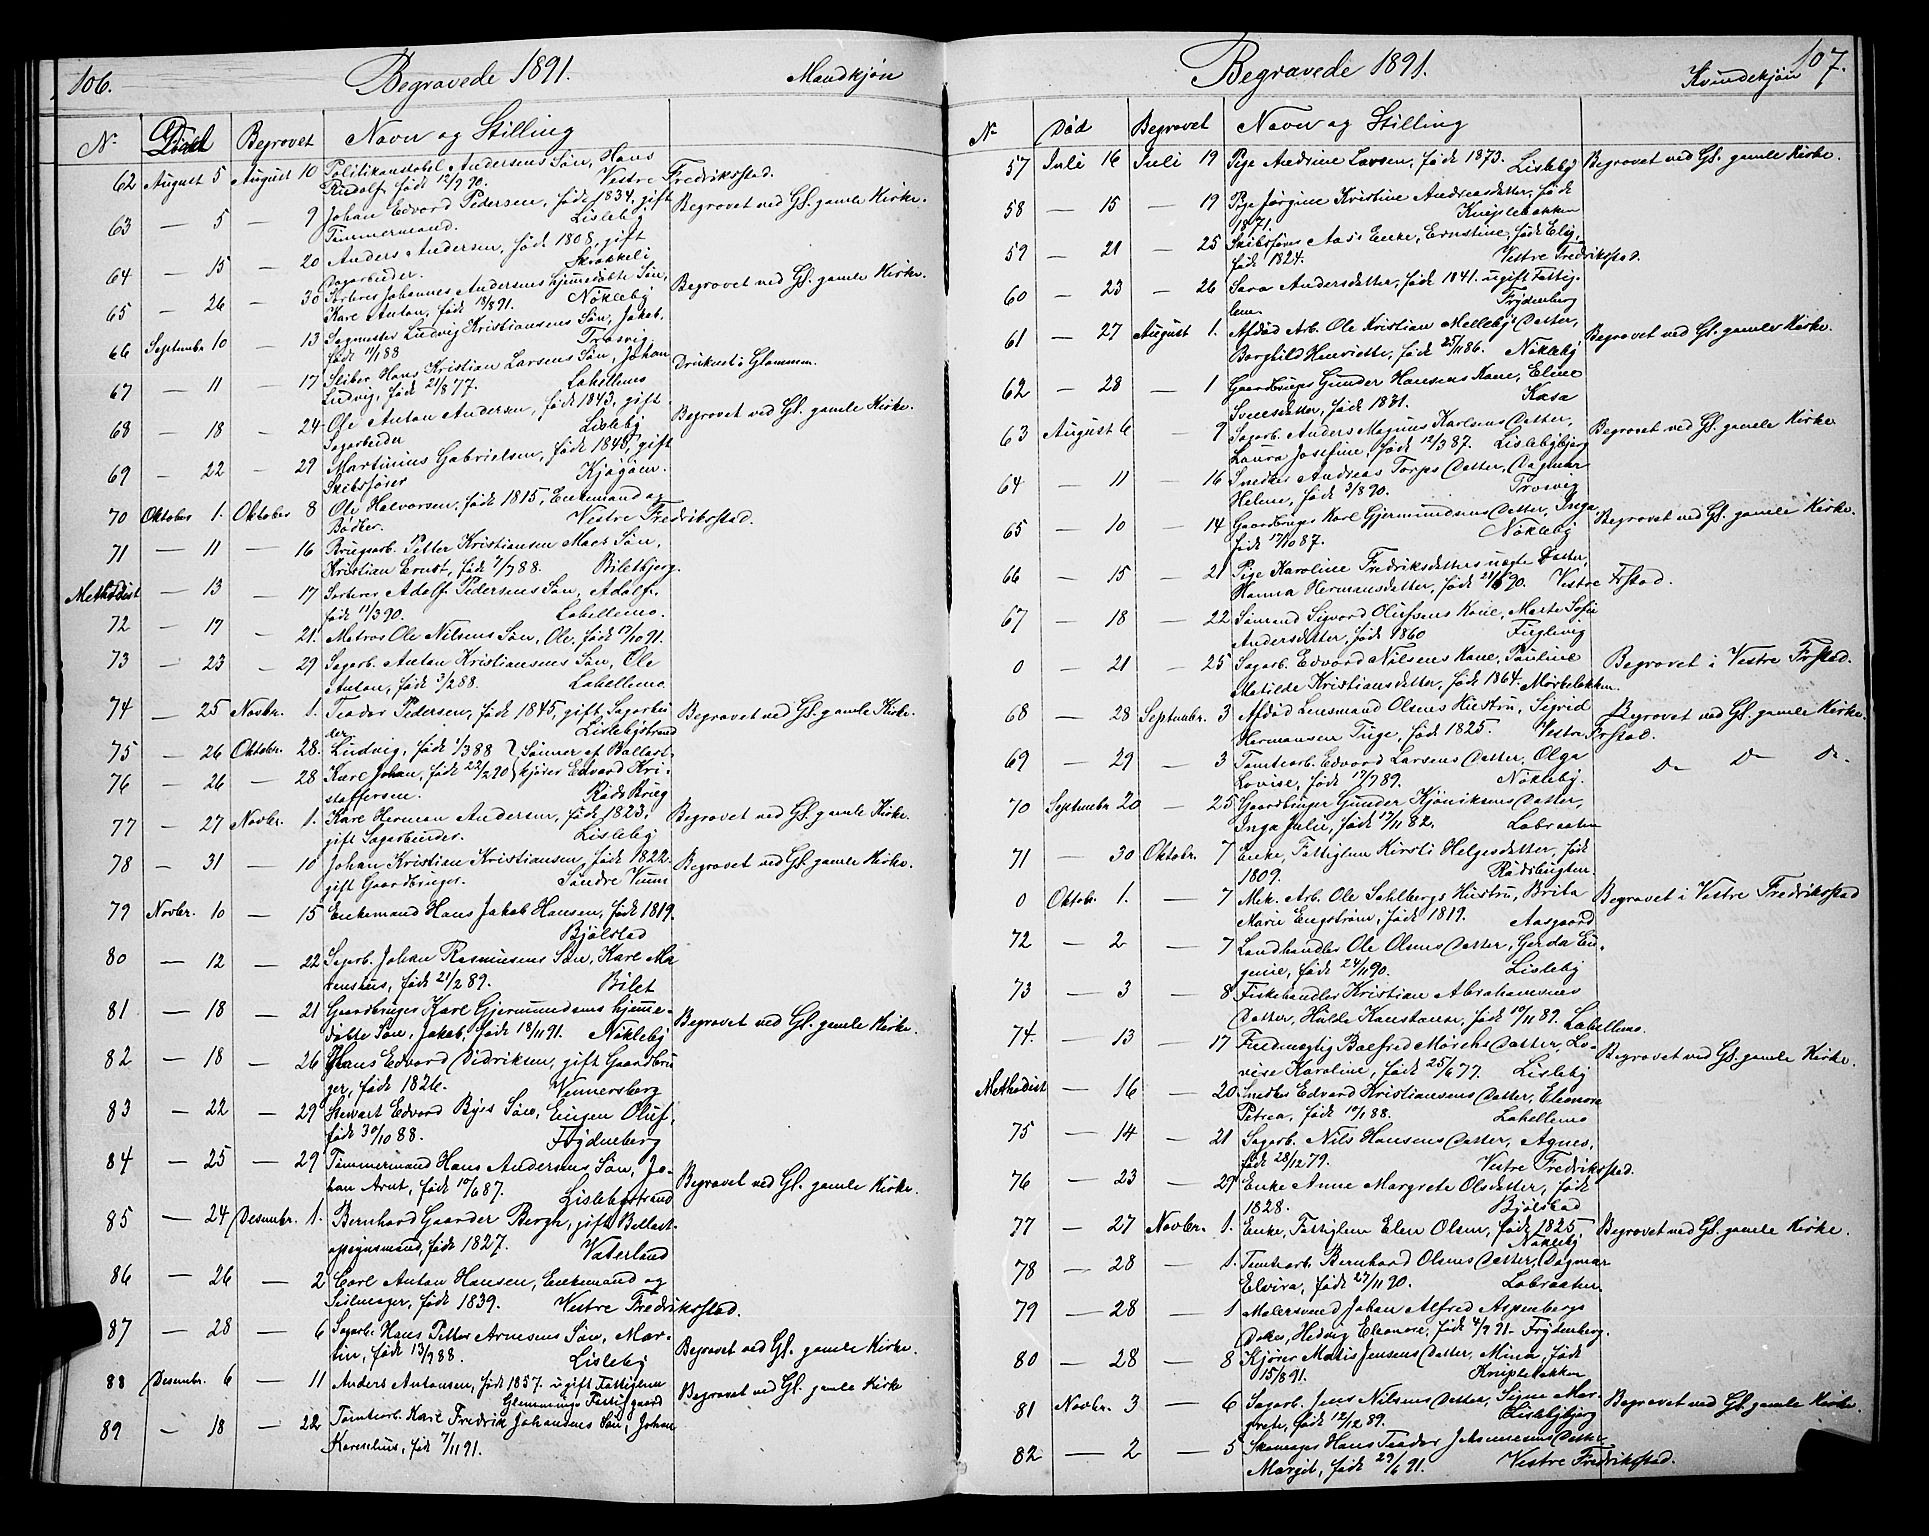 106. Begravede 1891. Mandkjøn
N. Død Begravet Navn og Stilling
62 August 5 August 10 Politikonstabel Andersens Søn, Hans
Rudolf, født 12/9 90. Vestre Fredriksstad.
63 — 5 — 9 Johan Edvard Pedersen, født 1834, gift Begravet ved Gl. gamle Kirke.
Tømmermand. Lisleby
64 — 15 — 20 Anders Andersen, født 1808, gift
Dagarbeider. Skrakkeli
65 — 26 — 30 Arbeider Johannes Andersens hjemmedøbte Søn, Begravet ved Gl. gamle Kirke.
Karl Anton, født 13/8 91. Nøkleby
66 Septembr 10 — 13 Sagmester Ludvig Kristiansens Søn, Jakob,
født 11/1 88 Trosvig
67 — 11 — 17 Sliber Hans Kristian Larsens Søn, Johan Druknet i Glommen.
Ludvig, født 21/8 77. Lahellemo
68 — 18 — 24 Ole Anton Andersen, født 1843, gift Begravet ved Gl. gamle Kirke.
Sagarbeider Lisleby
69 — 22 — 29 Martinius Gabrielsen, født 1848, gift
Skibsfører Kjøgøen.
70 Oktober 1. Oktober 8 Ole Halvorsen, født 1815, Enkemand og
Bødker. Vestre Fredriksstad.
71 — 11 — 16 Brugsarb. Petter Kristiansen Moes Søn,
Kristian Ernst, født 7/7 88. Biletbjerg.
Methodist — 13 — 17 Adolf Pedersens Søn, Adolf,
født 11/3 90. Lahellemo.
72 — 17 — 21. Matros Ole Nilsens Søn, Ole, født 17/10 91.
73 — 23 — 29 Sagarb. Anton Kristiansens Søn, Ole
Anton, født 3/2 88. Lahellemo.
74 — 25 Novbr. 1. Teodor Pedersen, født 1845, gift Sagarbei Begravet ved Gl. gamle Kirke.
der. Lislebystrand
75 — 26 Oktobr. 28. Ludvig, født 1/3 88 } Sønner af Ballast-
76 — 26 — 28 Karl Johan, født 22/2 90 } kjører Edvard Kri-
stoffersen. Råds Brug
77 — 27 Novbr. 1. Karl Herman Andersen, født 1823, Begravet ved Gl. gamle Kirke.
gift Sagarbeider. Lisleby
78 — 31 — 10 Johan Kristian Kristiansen, født 1822. Begravet ved Gl. gamle Kirke.
gift Gaardbruger. Søndre Vium
79 Novbr. 10 — 15 Enkemand Hans Jakob Hansen, født 1819.
Bjølstad
80 — 12 — 22 Sagarb. Johan Rasmusens Søn, Karl Ma
rensius, født 21/2 89. Bilet
81 — 18 — 21 Gaardbruger Karl Gjermundsens hjemme- Begravet ved Gl. gamle Kirke.
døbte Søn, Jakob, født 18/11 91. Nøkleby
82 — 18 — 26 Hans Edvard Didriksen, gift Gaardbru
ger, født 1826. Vennersberg
83 — 22 — 29 Stewart Edvard Byes Søn, Eugen Oluf,
født 30/10 88. Frydenberg
84 — 25 — 29 Tømmermand Hans Andersens Søn, Jo-
han Arnt, født 10/6 87. Lislebystrand Begravet ved Gl. gamle Kirke.
85 — 24 Desembr. 1. Bernhard Gaarder Bergh, gift Ballast-
opsynsmand, født 1827. Vaterland
86 — 26 — 2 Carl Anton Hansen, Enkemand og
Seilmager, født 1839. Vestre Fredriksstad.
87 — 28 — 6 Sagarb. Hans Petter Arnesens Søn, Mar- Begravet ved Gl. gamle Kirke.
tin, født 13/7 88. Lisleby
88 Desembr. 6 — 11 Anders Antonsen, født 1857. ugift Fattiglem Begravet ved Gl. gamle Kirke
Glemminge Fattiggaard
89 — 18 — 22 Tomtearb. Karl Fredrik Johansens Søn, Johan
Kornelius, født 7/11 91.
Begravede 1891. Kvindekjøn 107.
N. Død Begravet Navn og Stilling
57 Juli 16 Juli 19 Pige Andrine Larsen, født 1873. Lisleby Begravet ved Gl. gamle Kirke.
58 — 15 — 19 Pige Jørgine Kristine Andreasdatter, født
1871. Kniplebakken
59 — 21 — 25 Skibsfører Aass Enke, Ernstine, født Elig,
født 1824. Vestre Fredriksstad.
60 — 23 — 26 Sara Andersdatter, født 1841. ugift Fattig-
lem Frydenberg
61 — 27 August 1. Afdød Arb. Ole Kristian Mellebys Datter, Begravet ved Gl. gamle Kirke.
Borghild Henriette, født 25/11 86. Nøkleby
62 — 28 — 1 Gaardbrugs Gunder Hansens Kone, Eline
Svensdatter, født 1831. Kasa
63 August 6 — 9 Sagarb. Anders Magnus Karlsens Datter, Begravet ved Gl. gamle Kirke
Laura Josefine, født 12/3 87. Lislebybjerg
64 — 11 — 16 Snedker Andreas Torps Datter, Dagmar
Helene, født 3/8 90. Trosvig
65 — 10 — 14 Gaardbrugs Karl Gjermundsens Datter, Inga, Begravet ved Gl. gamle Kirke.
født 17/10 87. Nøkleby
66 — 15 — 21 Pige Karoline Fredriksdatters uægte Datter,
Hanna Hermansdatter, født 21/6 90. Vestre Frstad.
67 — 18 — 22 Sømand Sigvard Olufsens Kone, Marte Sofie
Andersdatter, født 1860 Fuglevig
0 — 21 — 25 Sagarb. Edvard Nilsens Kone, Pauline Begravet i Vestre Frstad.
Matilde Kristiansdatter, født 1864. Mørkeløkken
68 — 28 Septmbr. 3 Afdød Lensmand Olsens Hustru, Sigrid Begravet ved Gl. gamle Kirke.
Hermansen Tuge, født 1825. Vestre Frstad.
69 — 29 — 3 Tomtearb. Edvard Larsens Datter, Olga Do Do Do
Lovise, født 17/7 89. Nøkleby.
70 Septmbr 20 — 25 Gaardbruger Gunder Kjøniksens Datter,
Inga Julie, født 17/11 82. Labraaten
71 — 30 Oktobr. 7 Enke, Fattiglem Kirsti Helgesdatter, født
1809. Rådsbugten
0 Oktobr. 1. — 7 Mek. Arb. Ole Sahlbergs Hustru, Brita Begravet i Vestre Fredriksstad
Marie Engstrøm, født 1819. Aasgaard
72 — 2 — 7 Landhandler Ole Olsens Datter, Gerda Eu-
genie, født 24/11 90. Lisleby
73 — 3 — 8 Fiskehandler Kristian Abrahamsens
Datter, Hulda Konstanse, født 10/11 89. Lahellemo.
74. — 13 — 17 Fuldmægtig Balfred Mørchs Datter, Lo- Begravet ved Gl. gamle Kirke.
vise Karoline, født 25/6 77. Lisleby
Methodist — 16 — 20 Snedker Edvard Kristiansens Datter, Eleonora
Petrea, født 10/1 88. Lahellemo
75 — 14 — 21 Sagarb. Nils Hansens Datter, Agnes,
født 28/12 79. Vestre Fredriksstad.
76 — 23 — 29 Enke Anne Margrete Olsdatter, født
1828. Bjølstad
77 — 27 Novbr. 1. Enke, Fattiglem Elen Olsen, født 1825 Begravet ved Gl. gamle Kirke.
Nøkleby
78 — 28 — 1. Tomtearb. Bernhard Olsens Datter, Dagmar
Elvira, født 27/11 90. Labraaten.
79 — 28 — 1 Malersvend Johan Alfred Aspenbergs
Datter, Hedvig Eleonore, født 4/9 91. Frydenberg.
80 — 28 — 8 Kjører Matis Jensens Datter, Mina, født
15/8 91. Kniplebakken
81 Novbr. 3 — 6 Sagarb. Jens Nilsens Datter, Signe Mar- Begravet ved Gl. gamle Kirke.
grete, født 12/12 89. Lislebybjerg
82 — 2 — 5 Skomager Hans Teodor Johannesens Datter
Margit, født 29/6 91. Vestre Fredriksstad.